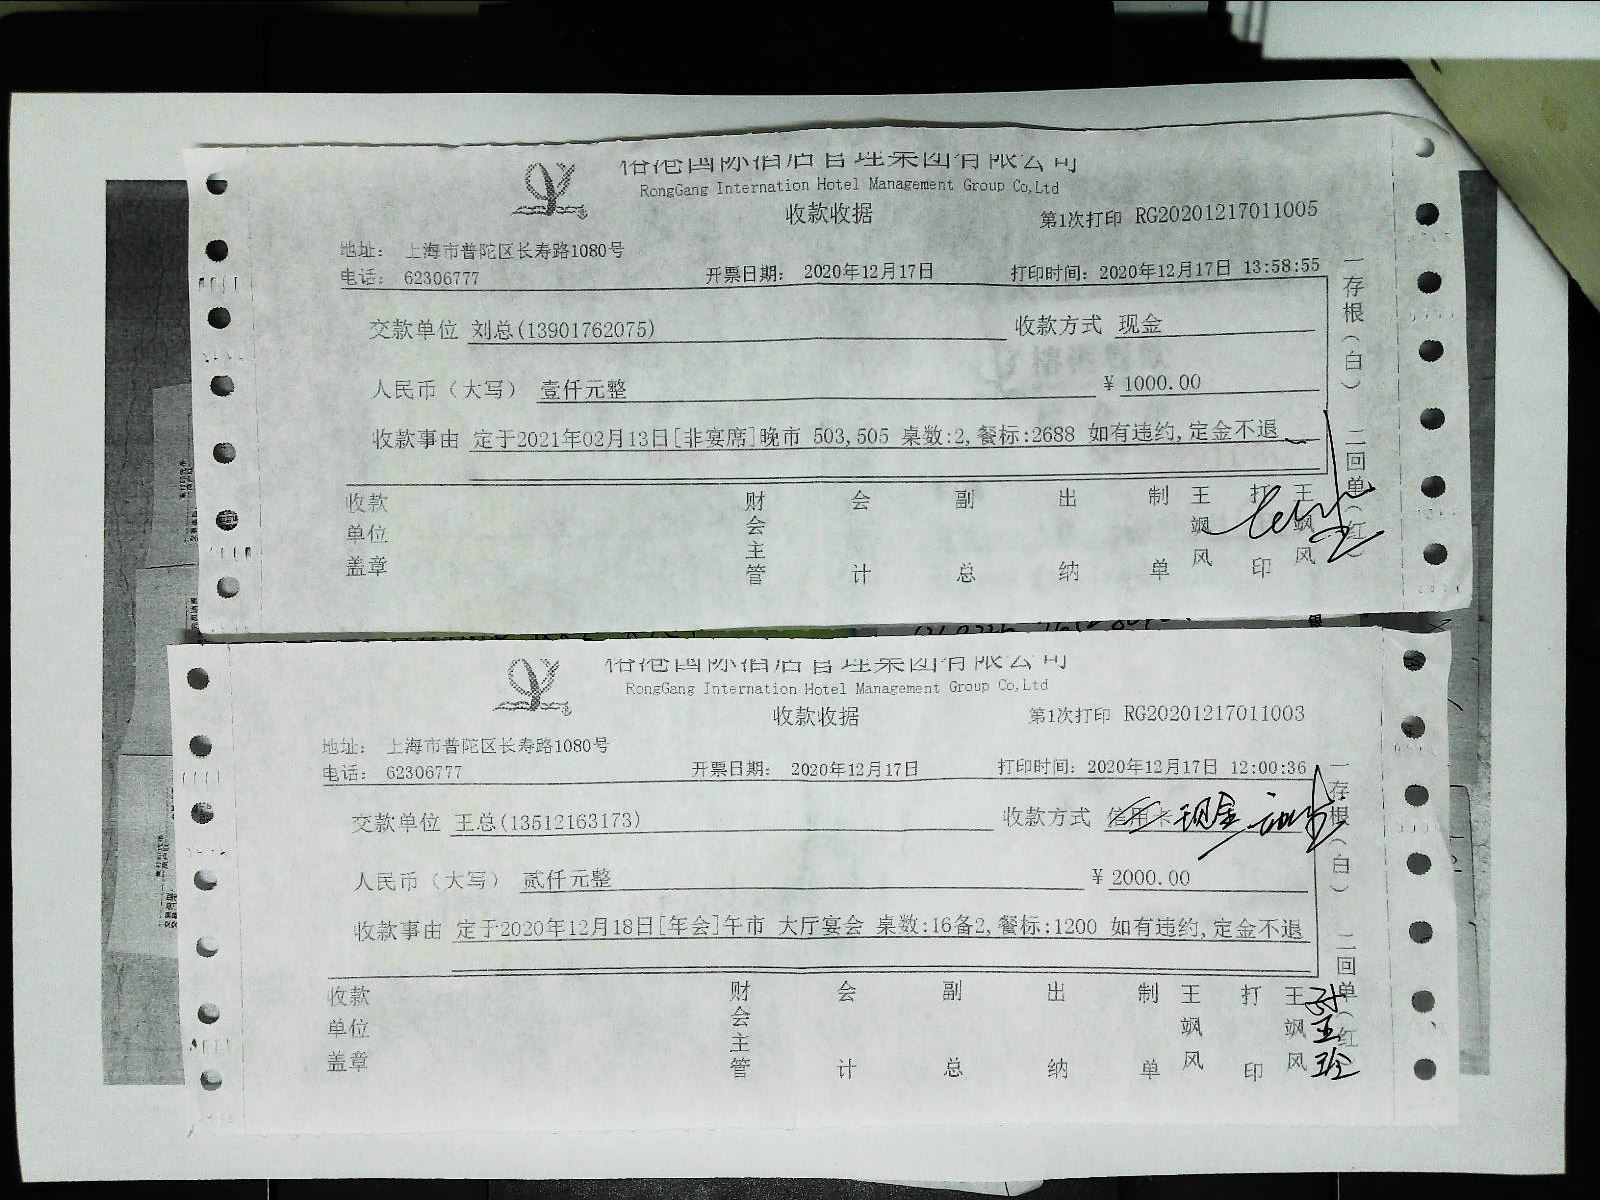 裕港国际酒店管理集团有限公司
RongGang Internation Hotel Management Group Co,Ltd
收款收据 第1次打印 RG20201217011005
地址: 上海市普陀区长寿路1080号
电话: 62306777 开票日期: 2020年12月17日 打印时间: 2020年12月17日 13:58:55
交款单位 刘总(13901762075) 收款方式 现金
人民币(大写) 壹仟元整 ¥ 1000.00
收款事由 定于2021年02月13日[非宴席]晚市 503,505 桌数:2,餐标:2688 如有违约,定金不退
一存根(白) 二回单(红)
收款单位盖章 财会主管 会计 副总 出纳 制单 王飒风 打印 王飒风
裕港国际酒店管理集团有限公司
RongGang Internation Hotel Management Group Co,Ltd
收款收据 第1次打印 RG20201217011003
地址: 上海市普陀区长寿路1080号
电话: 62306777 开票日期: 2020年12月17日 打印时间: 2020年12月17日 12:00:36
交款单位 王总(13512163173) 收款方式 信用卡 现金
人民币(大写) 贰仟元整 ¥ 2000.00
收款事由 定于2020年12月18日[年会]午市 大厅宴会 桌数:16备2,餐标:1200 如有违约,定金不退
一存根(白) 二回单(红)
收款单位盖章 财会主管 会计 副总 出纳 制单 王飒风 打印 王飒风